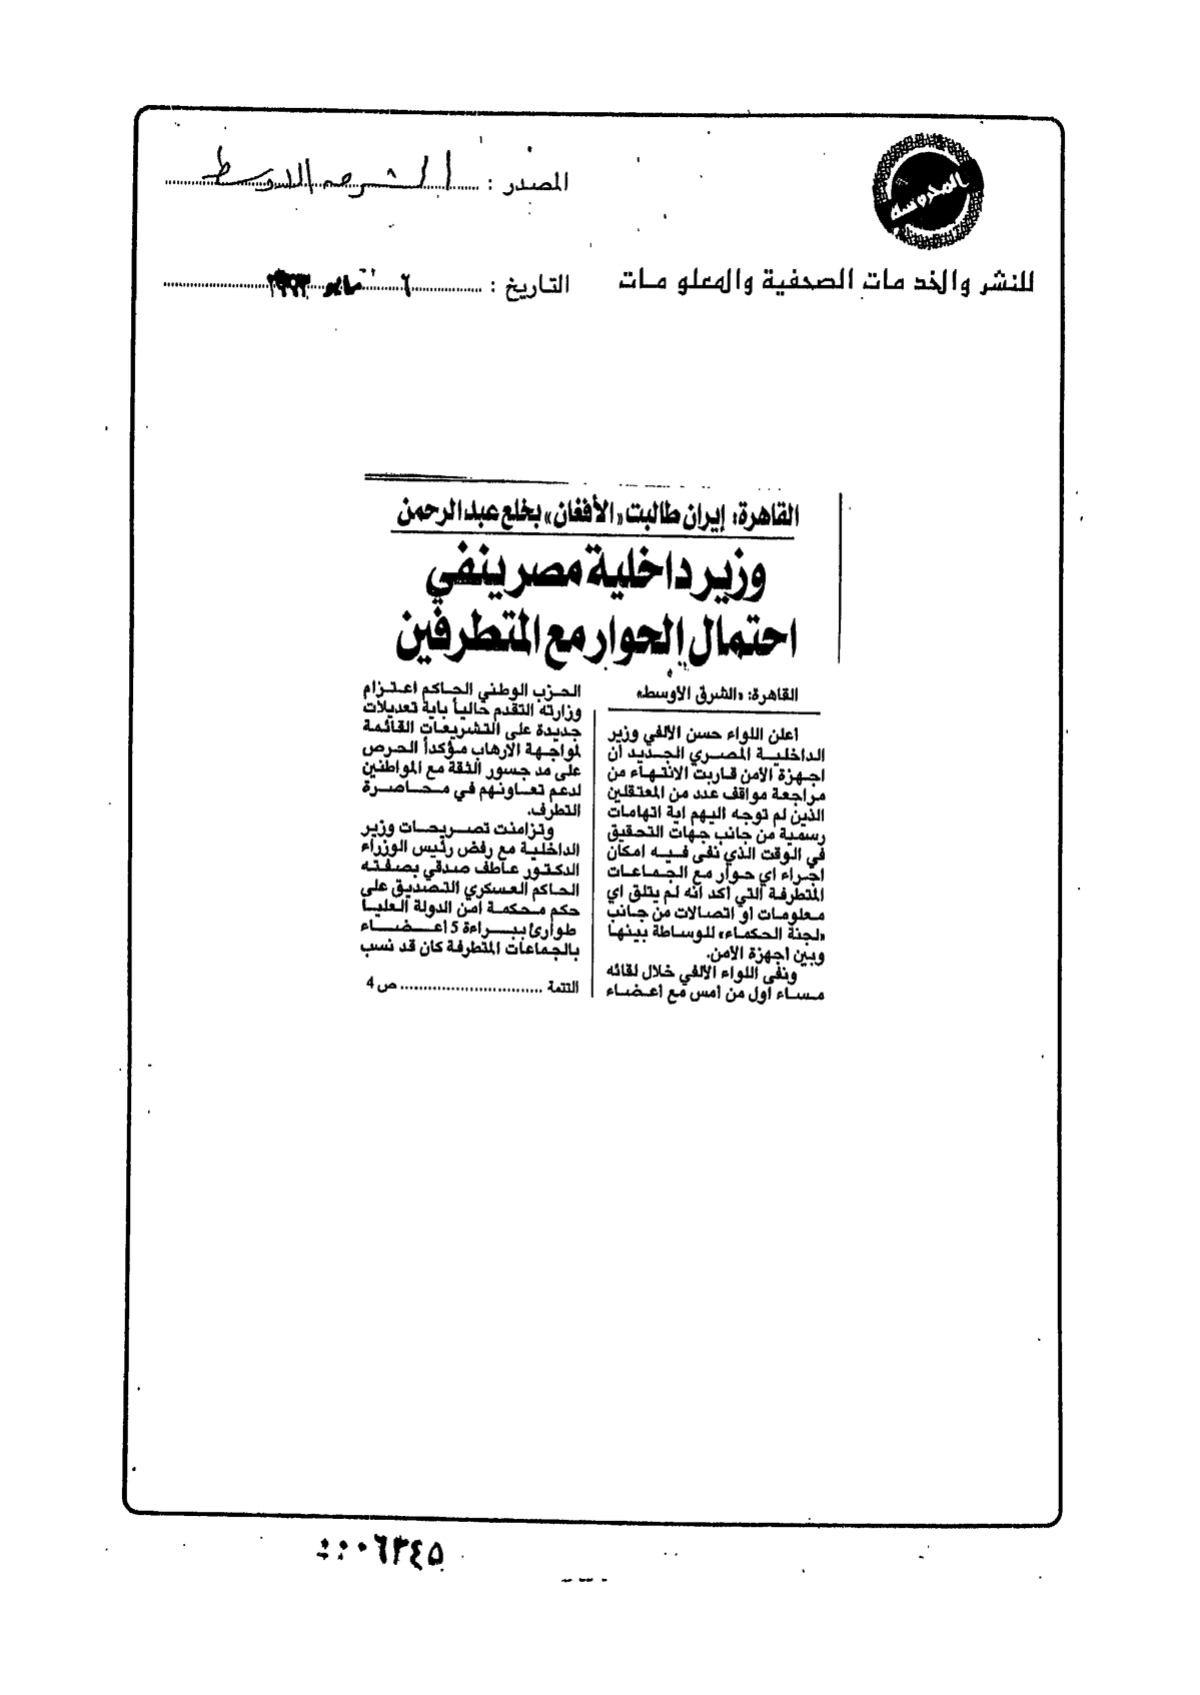 المحروسة
المصدر : الشرق الاوسط
للنشر والخدمات الصحفية والمعلومات
التاريخ : ٦ مايو ١٩٩٣
القاهرة: إيران طالبت «الأفغان» بخلع عبدالرحمن
وزير داخلية مصر ينفي
احتمال الحوار مع المتطرفين
القاهرة: «الشرق الأوسط»
اعلن اللواء حسن الالفي وزير
الداخلية المصري الجديد أن
اجهزة الامن قاربت الانتهاء من
مراجعة مواقف عدد من المعتقلين
الذين لم توجه اليهم اية اتهامات
رسمية من جانب جهات التحقيق
في الوقت الذي نفى فيه امكان
اجراء اي حوار مع الجماعات
المتطرفة التي اكد انه لم يتلق اي
معلومات او اتصالات من جانب
«لجنة الحكماء» للوساطة بينها
وبين اجهزة الامن.
ونفى اللواء الالفي خلال لقائه
مساء اول من أمس مع أعضاء
الحزب الوطني الحاكم اعتزام
وزارته التقدم حالياً باية تعديلات
جديدة على التشريعات القائمة
لمواجهة الارهاب مؤكداً الحرص
على مد جسور الثقة مع المواطنين
لدعم تعاونهم في محاصرة
التطرف.
وتزامنت تصريحات وزير
الداخلية مع رفض رئيس الوزراء
الدكتور عاطف صدقي بصفته
الحاكم العسكري التصديق على
حكم محكمة امن الدولة العليا
طوارئ ببراءة 5 اعضاء
بالجماعات المتطرفة كان قد نسب
التتمة .............................. ص 4
٠٦٣٤٥